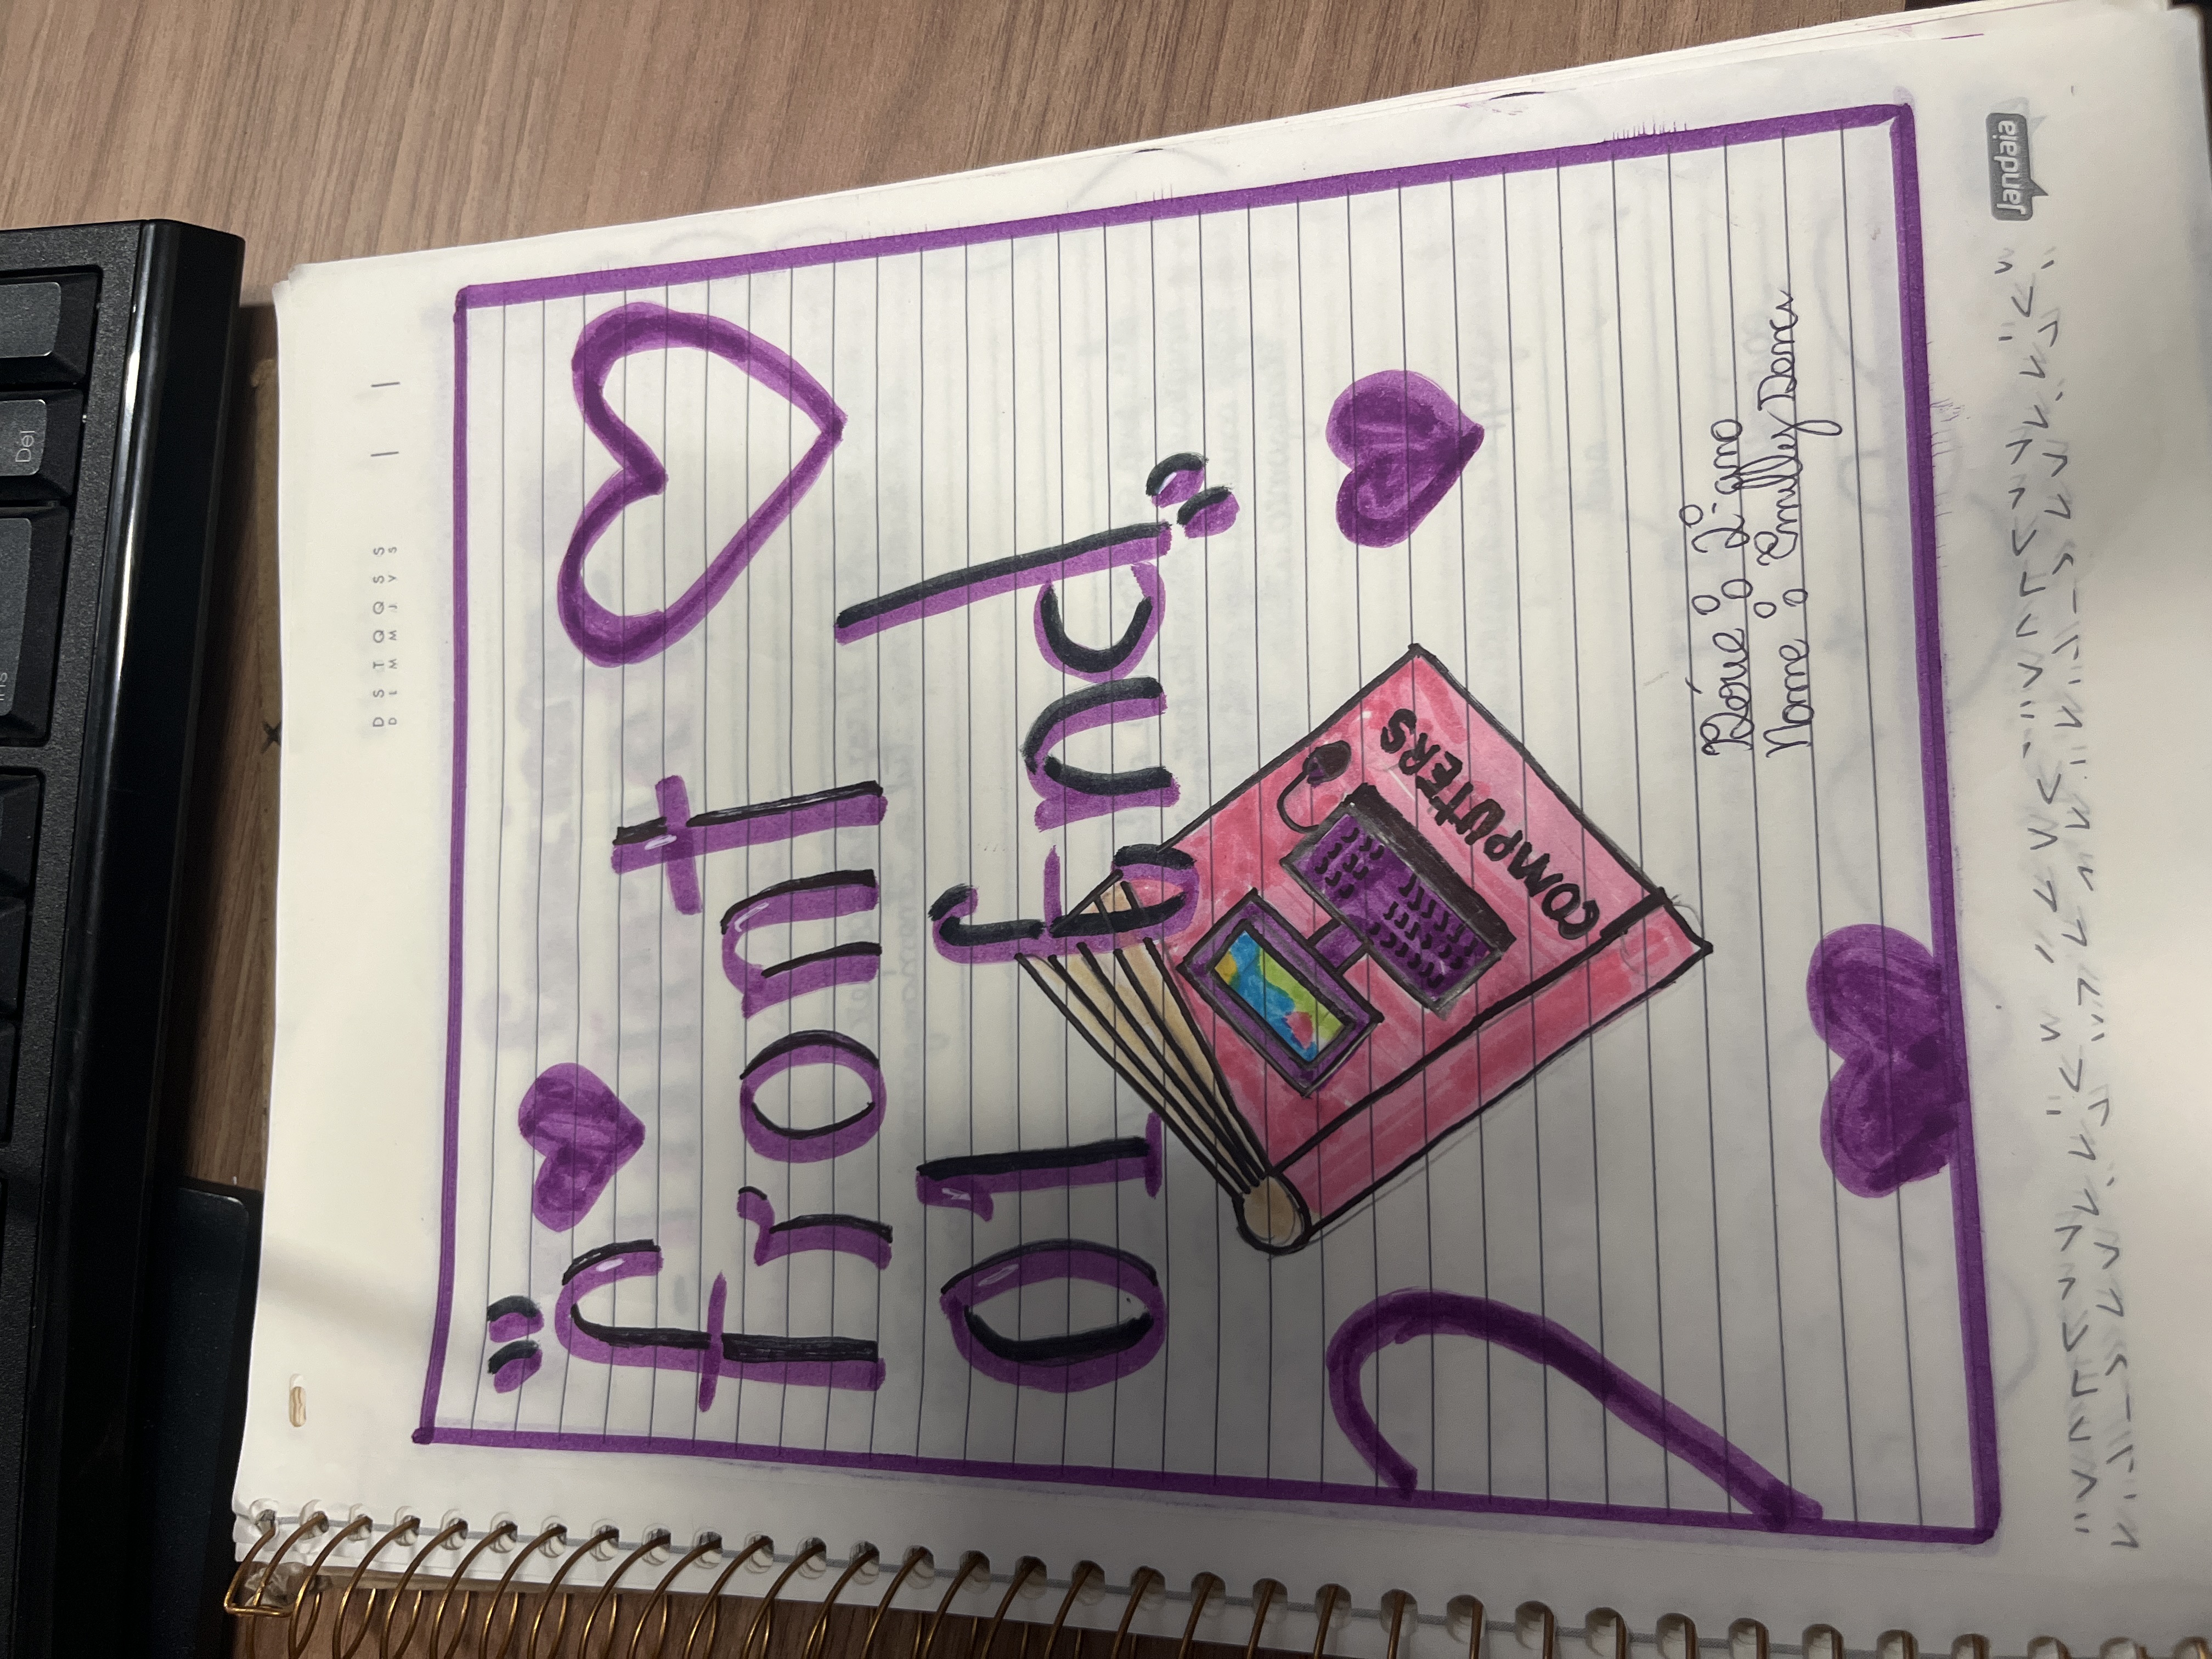 Ins
Del
D S T Q Q S S
D L M M J V S
"front
01 End"
COMPUTERS
Série : 2º ano
Nome : Emilly
Jandaia